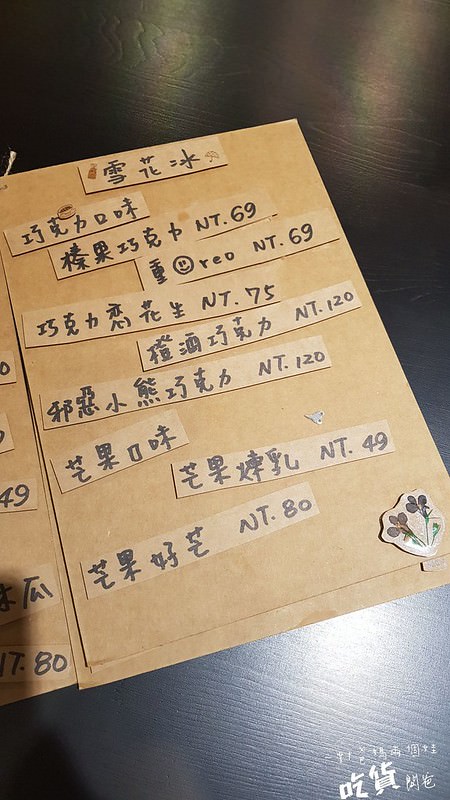 雪花冰
巧克力口味
榛果巧克力 NT.69
重☺reo NT.69
巧克力恋花生 NT.75
橙酒巧克力 NT.120
邪惡小熊巧克力 NT.120
芒果口味
芒果煉乳 NT.49
芒果好芒 NT.80
49
木瓜
NT.80
吃貨